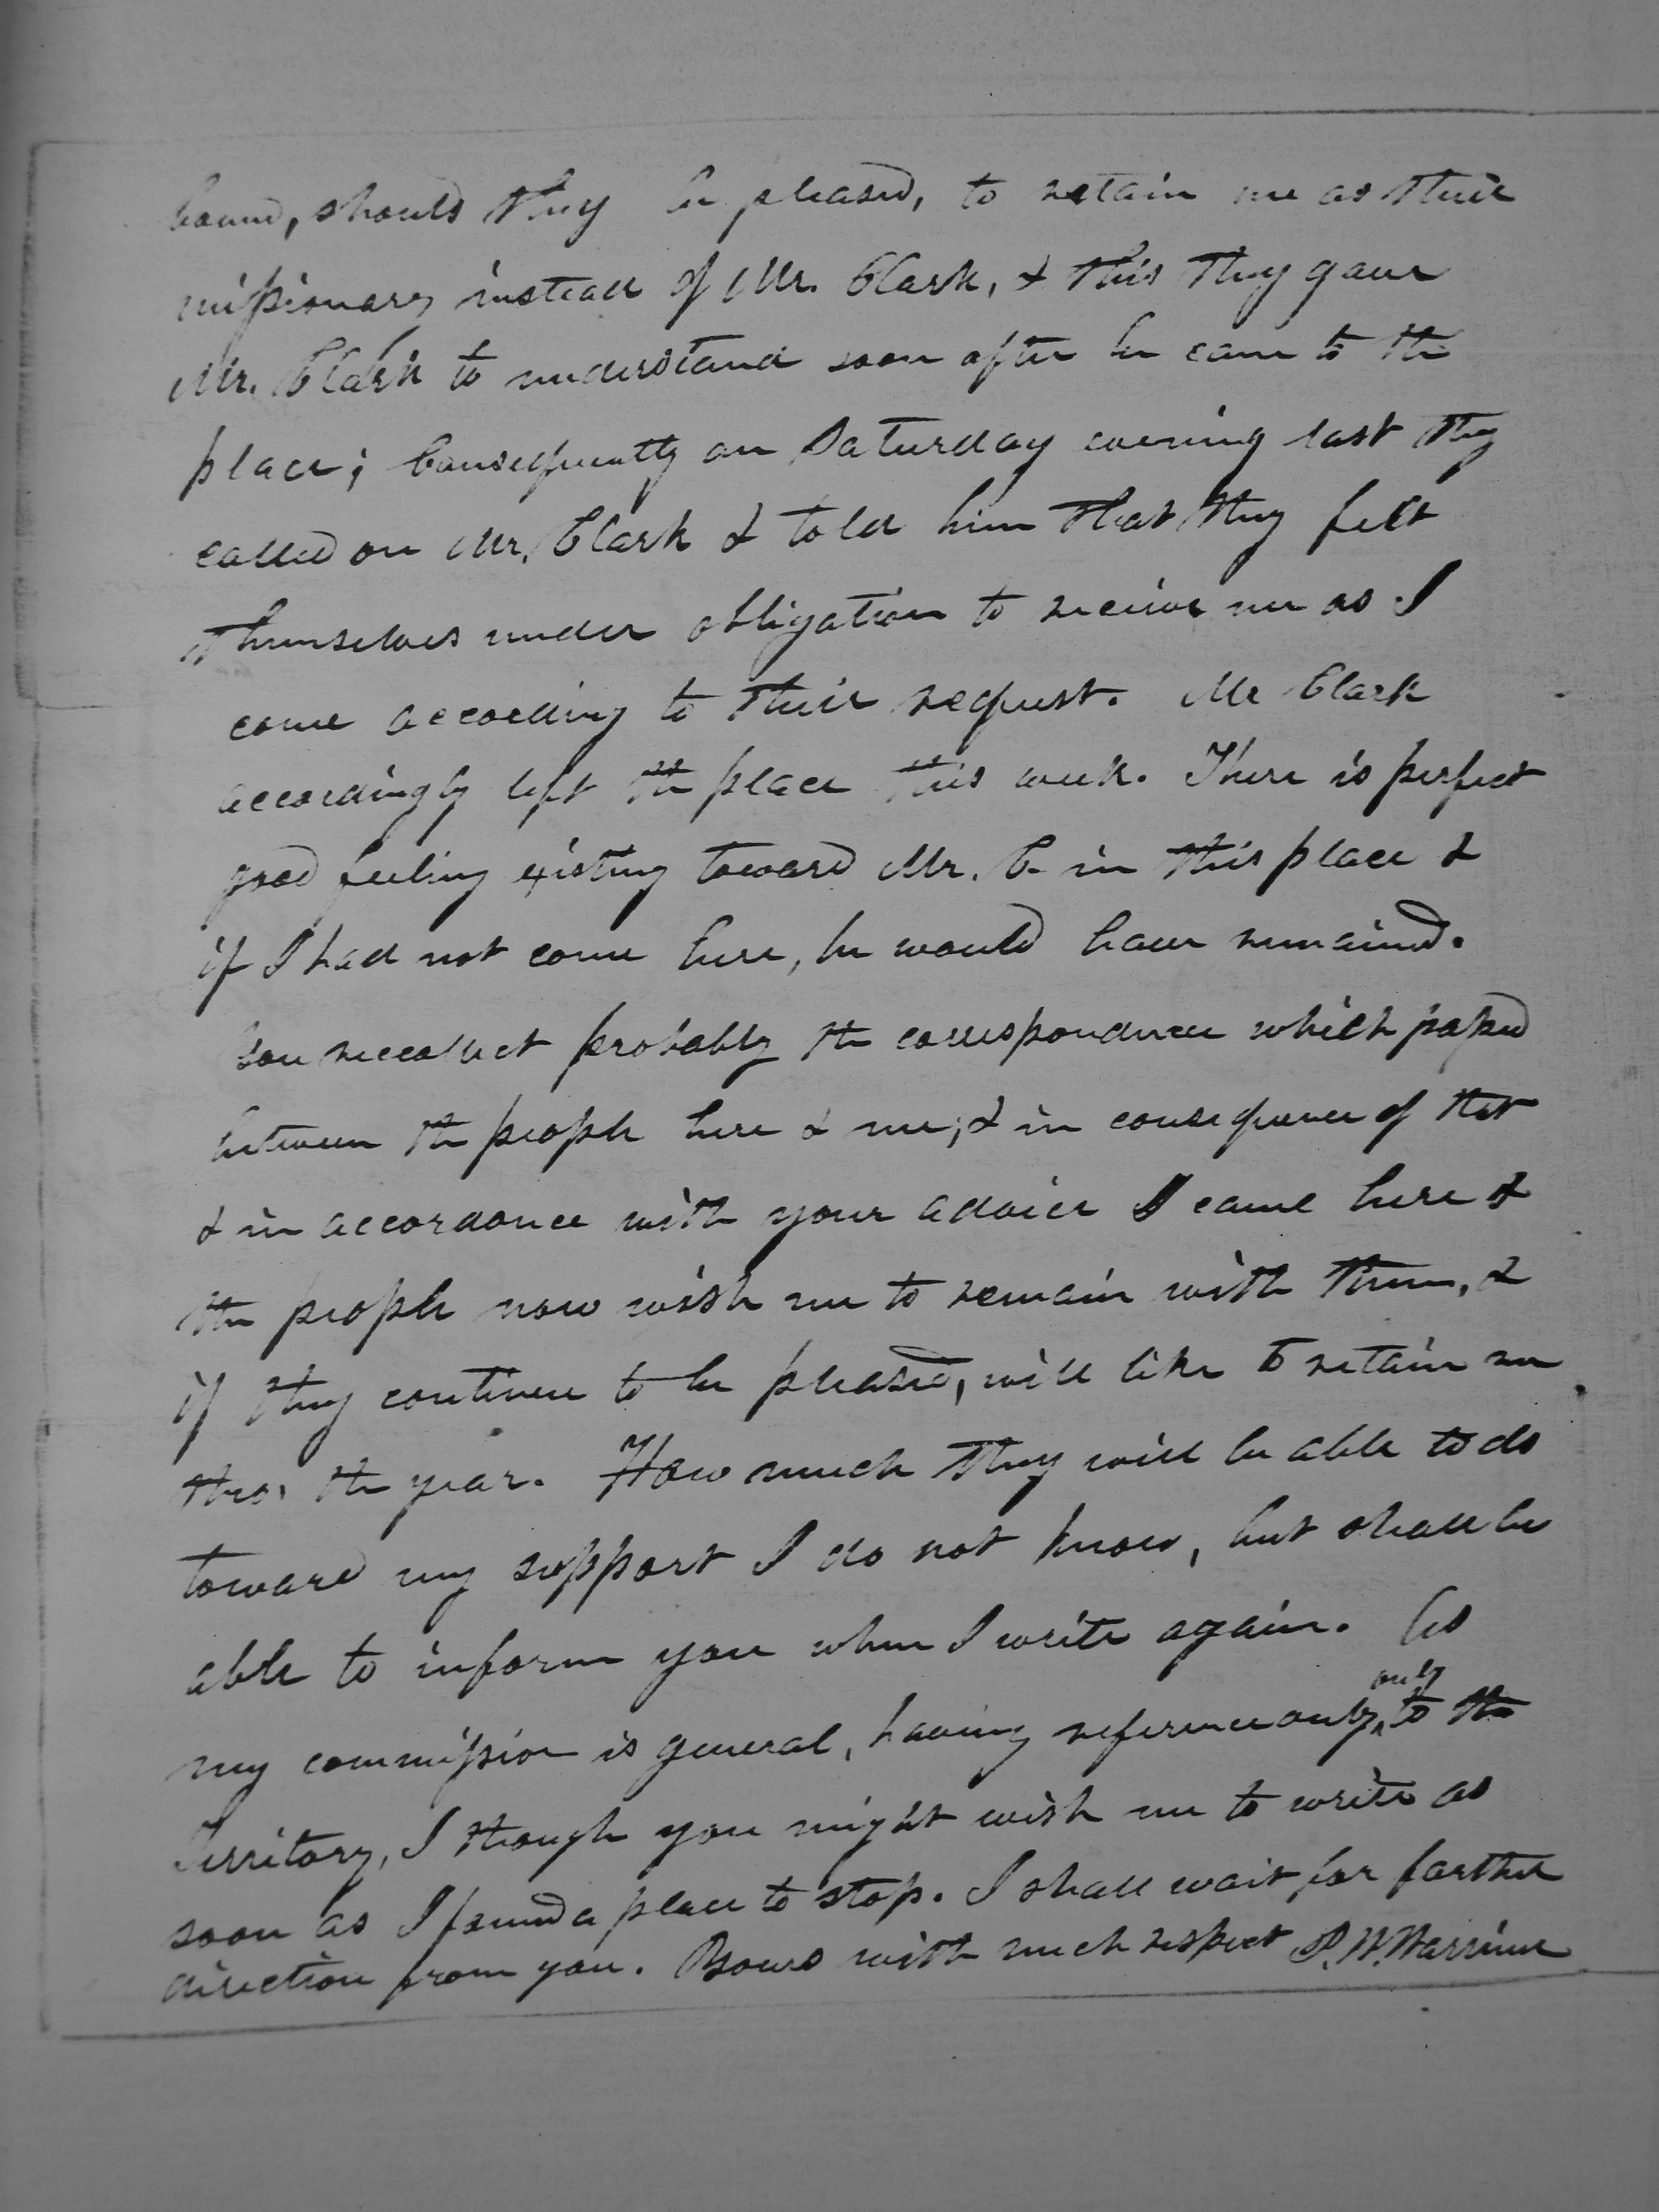 bound, should they be pleased, to retain me as their
missionary instead of Mr. Clark, & this they gave
Mr. Clark to understand soon after he came to the
place; Consequently on Saturday evening last they
called on Mr. Clark & told him that they felt
themselves under obligation to receive me as I
come according to their request. Mr Clark
accordingly left the place this week. There is perfect
good feeling existing toward Mr. C. in this place &
if I had not come here, he would have remained.
You reccollect probably the correspondence which passed
between the people here & me; & in consequence of that
& in accordance with your advice I came here &
the people now wish me to remain with them, &
if they continue to be pleased, will like to retain me
thro' the year. How much they will be able to do
toward my support I do not know, but shall be
able to inform you when I write again. As
my commission is general, having reference only only to the
Territory, I though you might wish me to write as
soon as I found a place to stop. I shall wait for farther
direction from you. Yours with much respect P. W. Warriner